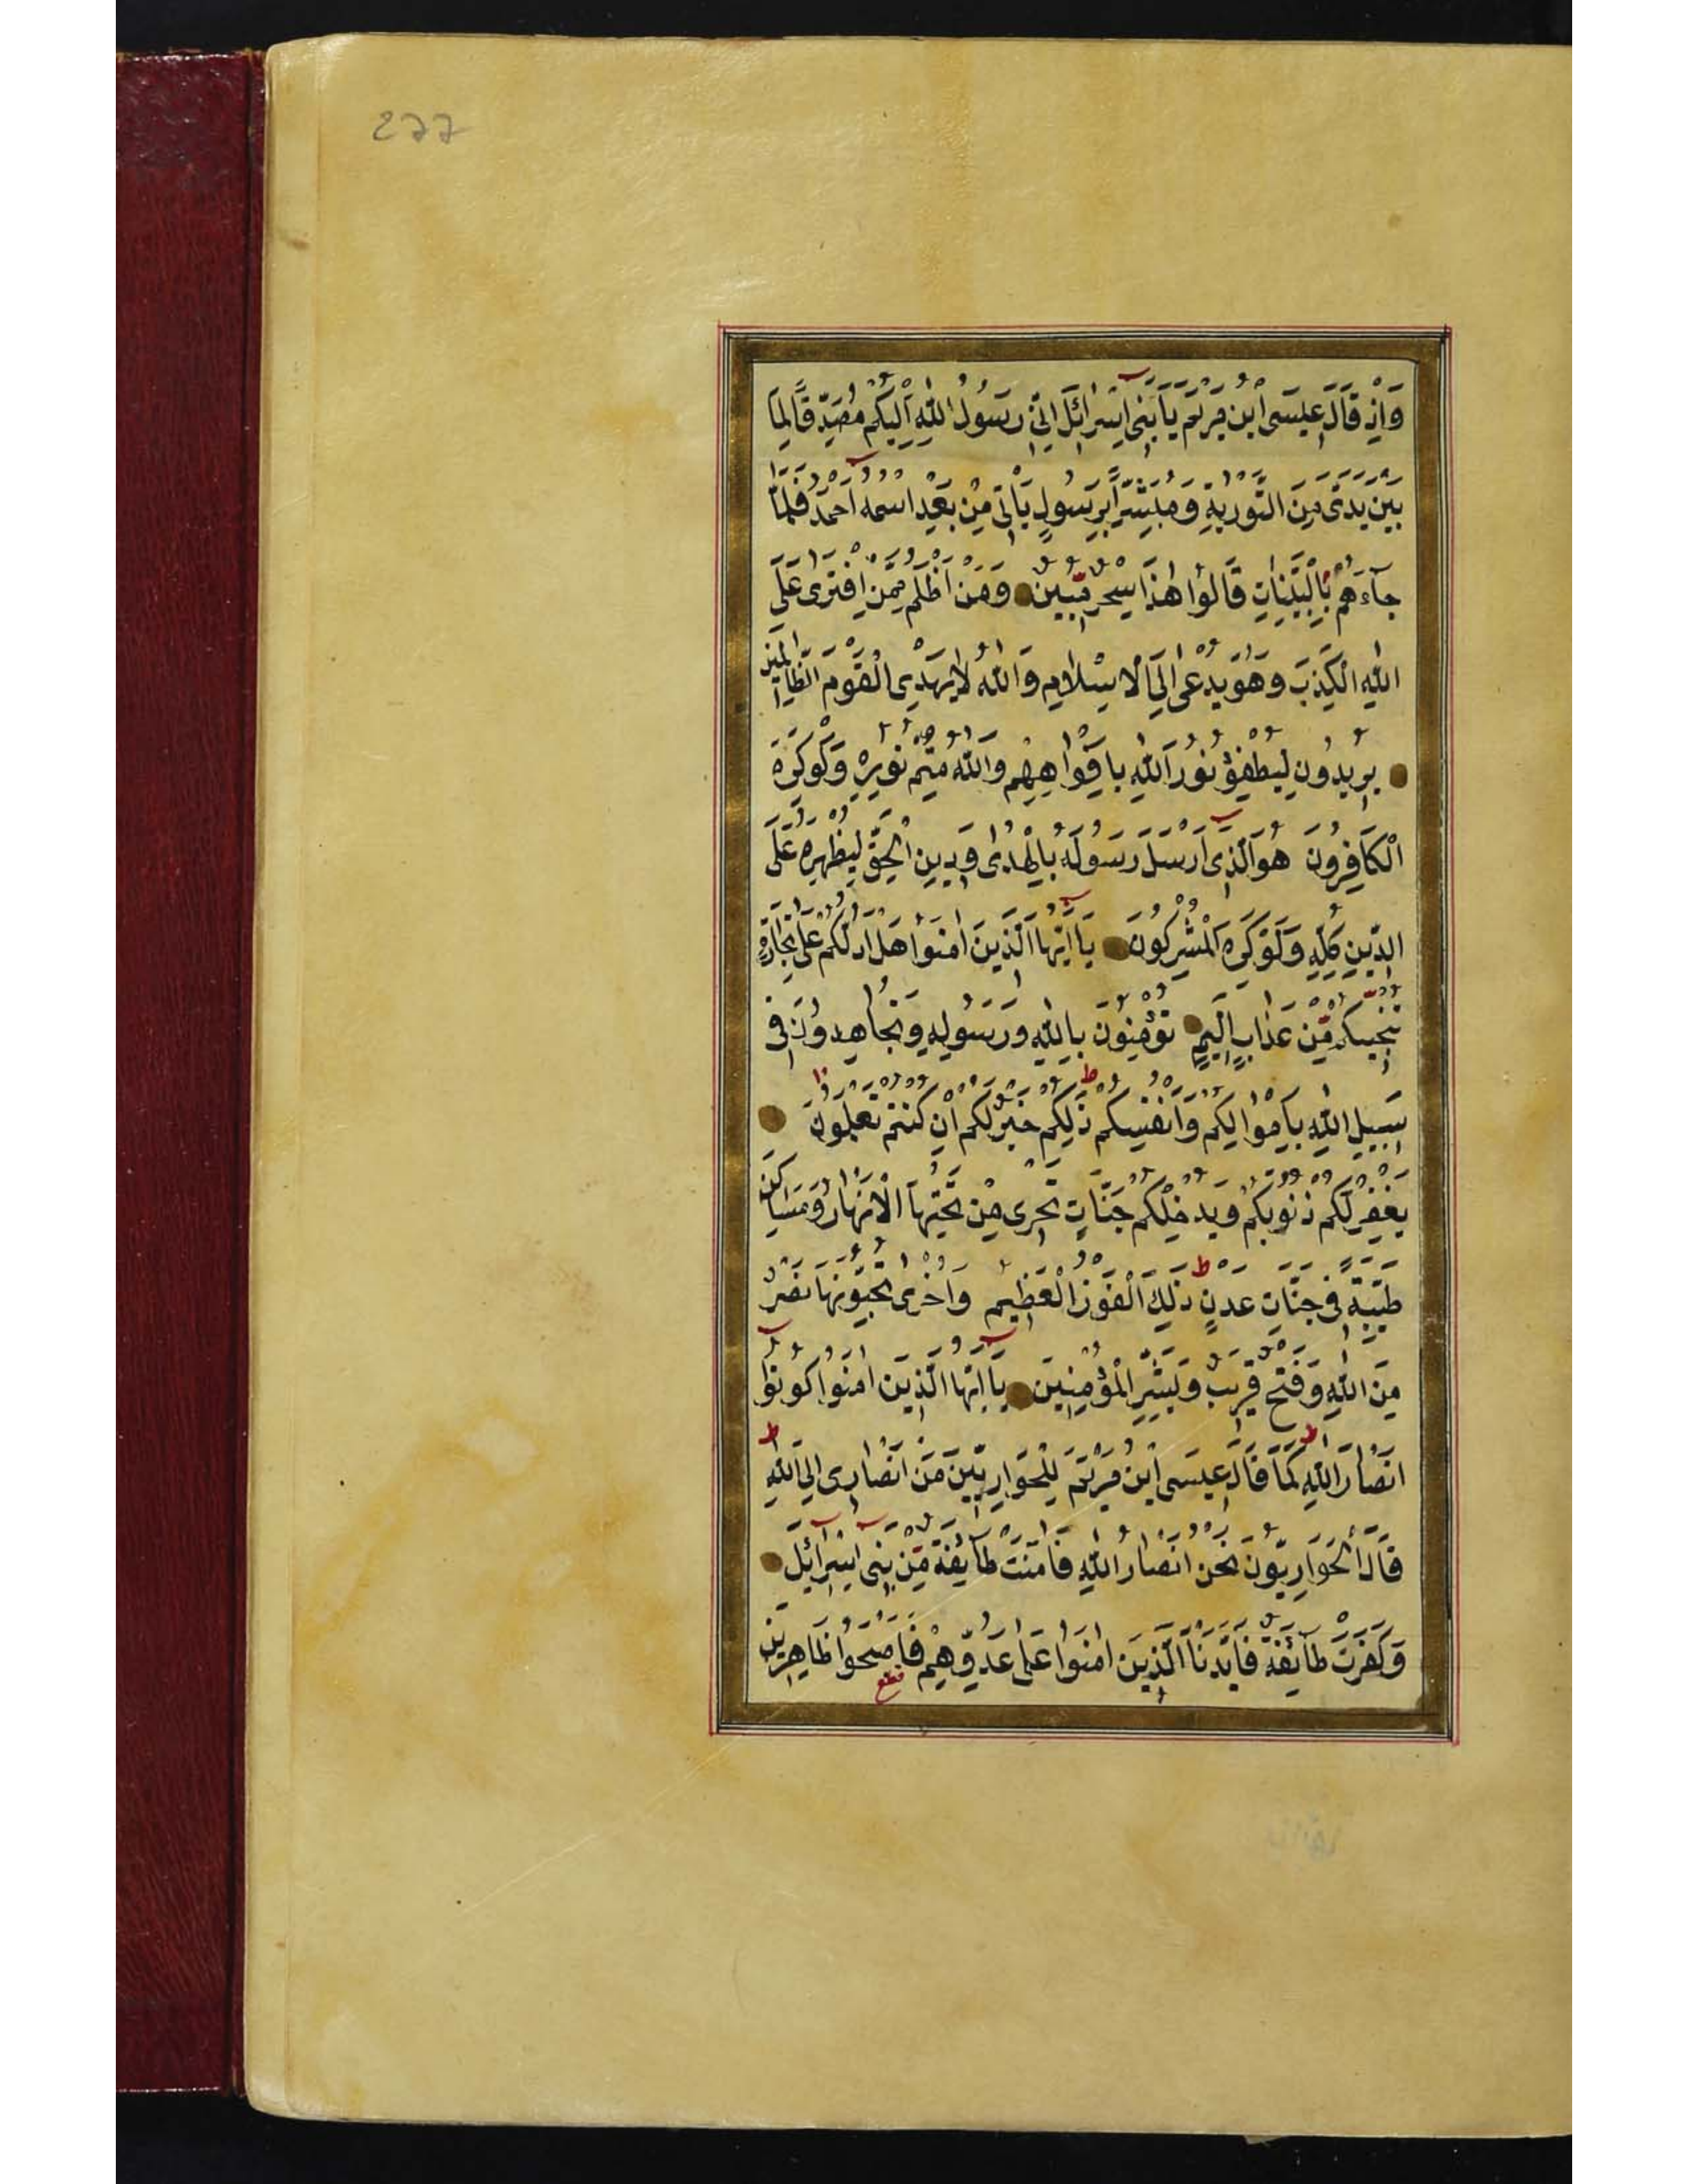 277
وَاِذْ قَالَ عِيسَى ابْنُ مَرْيَمَ يَا بَنِى اِسْرَائِلَ اِنِّى رَسُولُ اللّٰهِ اِلَيْكُمْ مُصَدِّقًا لِمَا
بَيْنَ يَدَىَّ مِنَ التَّوْرٰيةِ وَمُبَشِّرًا بِرَسُولٍ يَاْتِى مِنْ بَعْدِ اسْمُهُ اَحْمَدُ فَلَمَّا
جَآءَهُمْ بِالْبَيِّنَاتِ قَالُوا هٰذَا سِحْرٌ مُّبِينٌ وَمَنْ اَظْلَمُ مِمَّنِ افْتَرٰى عَلَى
اللّٰهِ الْكَذِبَ وَهُوَ يُدْعٰى اِلَى الْاِسْلَامِ وَاللّٰهُ لَا يَهْدِى الْقَوْمَ الظَّالِمِينَ
يُرِيدُونَ لِيُطْفِؤُ نُورَ اللّٰهِ بِاَفْوَاهِهِمْ وَاللّٰهُ مُتِمُّ نُورِهِ وَلَوْ كَرِهَ
الْكَافِرُونَ هُوَ الَّذِى اَرْسَلَ رَسُولَهُ بِالْهُدٰى وَدِينِ الْحَقِّ لِيُظْهِرَهُ عَلَى
الدِّينِ كُلِّهِ وَلَوْ كَرِهَ الْمُشْرِكُونَ يَا اَيُّهَا الَّذِينَ اٰمَنُوا هَلْ اَدُلُّكُمْ عَلٰى تِجَارَةٍ
تُنْجِيكُمْ مِّنْ عَذَابٍ اَلِيمٍ تُؤْمِنُونَ بِاللّٰهِ وَرَسُولِهِ وَتُجَاهِدُونَ فِى
سَبِيلِ اللّٰهِ بِاَمْوَالِكُمْ وَاَنْفُسِكُمْ ذٰلِكُمْ خَيْرٌ لَكُمْ اِنْ كُنْتُمْ تَعْلَمُونَ
يَغْفِرْ لَكُمْ ذُنُوبَكُمْ وَيُدْخِلْكُمْ جَنَّاتٍ تَجْرِى مِنْ تَحْتِهَا الْاَنْهَارُ وَمَسَاكِنَ
طَيِّبَةً فِى جَنَّاتِ عَدْنٍ ذٰلِكَ الْفَوْزُ الْعَظِيمُ وَاُخْرٰى تُحِبُّونَهَا نَصْرٌ
مِنَ اللّٰهِ وَفَتْحٌ قَرِيبٌ وَبَشِّرِ الْمُؤْمِنِينَ يَا اَيُّهَا الَّذِينَ اٰمَنُوا كُونُوا
اَنْصَارَ اللّٰهِ كَمَا قَالَ عِيسَى ابْنُ مَرْيَمَ لِلْحَوَارِيِّينَ مَنْ اَنْصَارِى اِلَى اللّٰهِ
قَالَ الْحَوَارِيُّونَ نَحْنُ اَنْصَارُ اللّٰهِ فَاٰمَنَتْ طَآئِفَةٌ مِّنْ بَنِى اِسْرَآئِلَ
وَكَفَرَتْ طَآئِفَةٌ فَاَيَّدْنَا الَّذِينَ اٰمَنُوا عَلٰى عَدُوِّهِمْ فَاَصْبَحُوا ظَاهِرِينَ